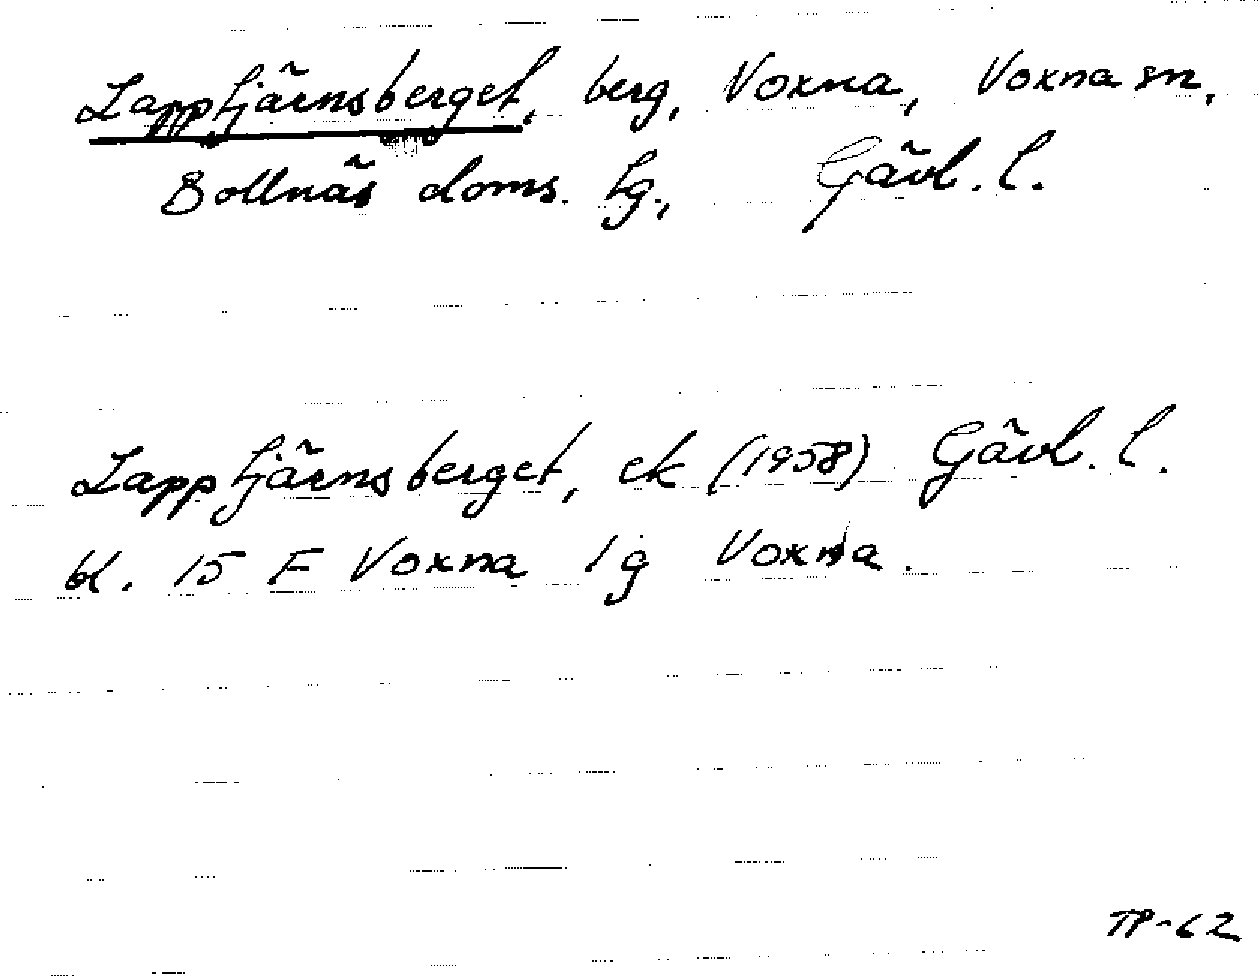 Lapptjärnsberget, berg, Voxna, Voxna sn,
Bollnäs doms. tg., Gävl. l.
Lapptjärnsberget, ek (1958) Gävl. l.
bl. 15 F Voxna 1 g Voxna.
TP-62